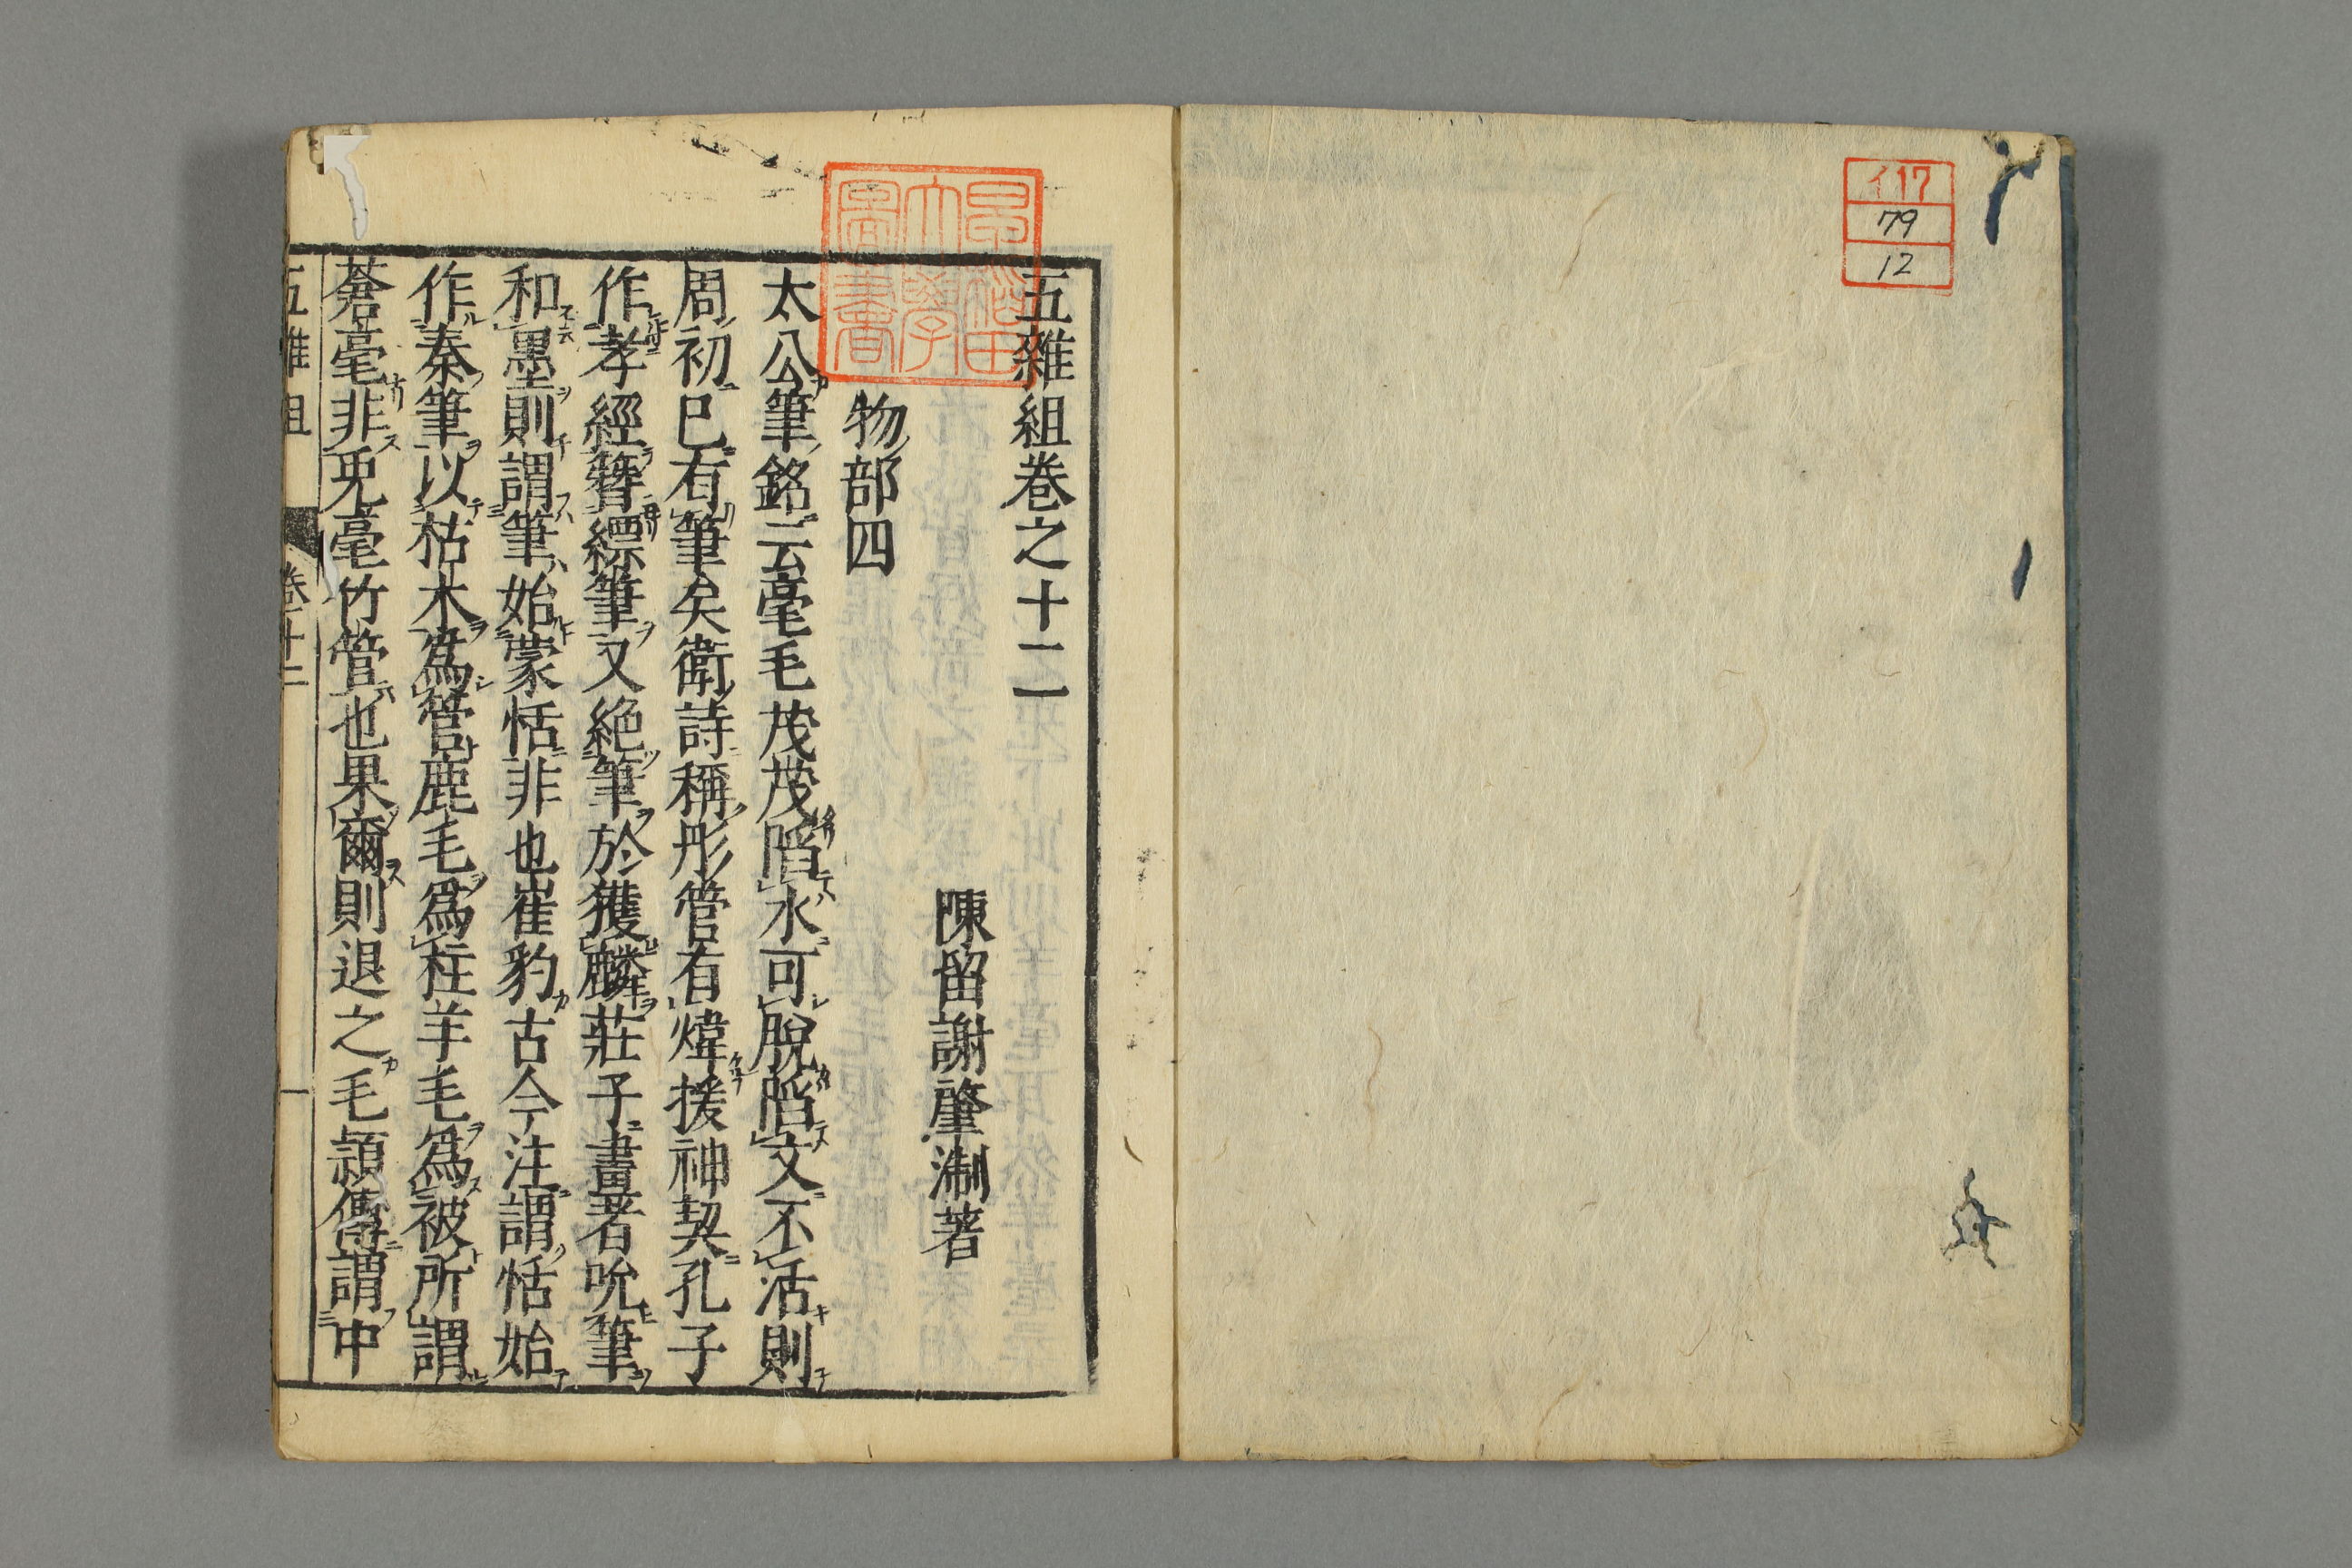 イ17
79
12
早稲田大學圖書
五雜組卷之十二
陳留謝肇淛著
物部四
太公筆銘云毫毛茂茂陷水可脫陷文不活則
周初已有筆矣衛詩稱彤管有煒援神契孔子
作孝經簪縹筆又絶筆於獲麟莊子畫者吮筆
和墨則謂筆始蒙恬非也崔豹古今注謂恬始
作秦筆以枯木爲管鹿毛爲柱羊毛爲被所謂
蒼毫非兎毫竹管也果爾則退之毛頴傳謂中
五雜組
卷十二
一